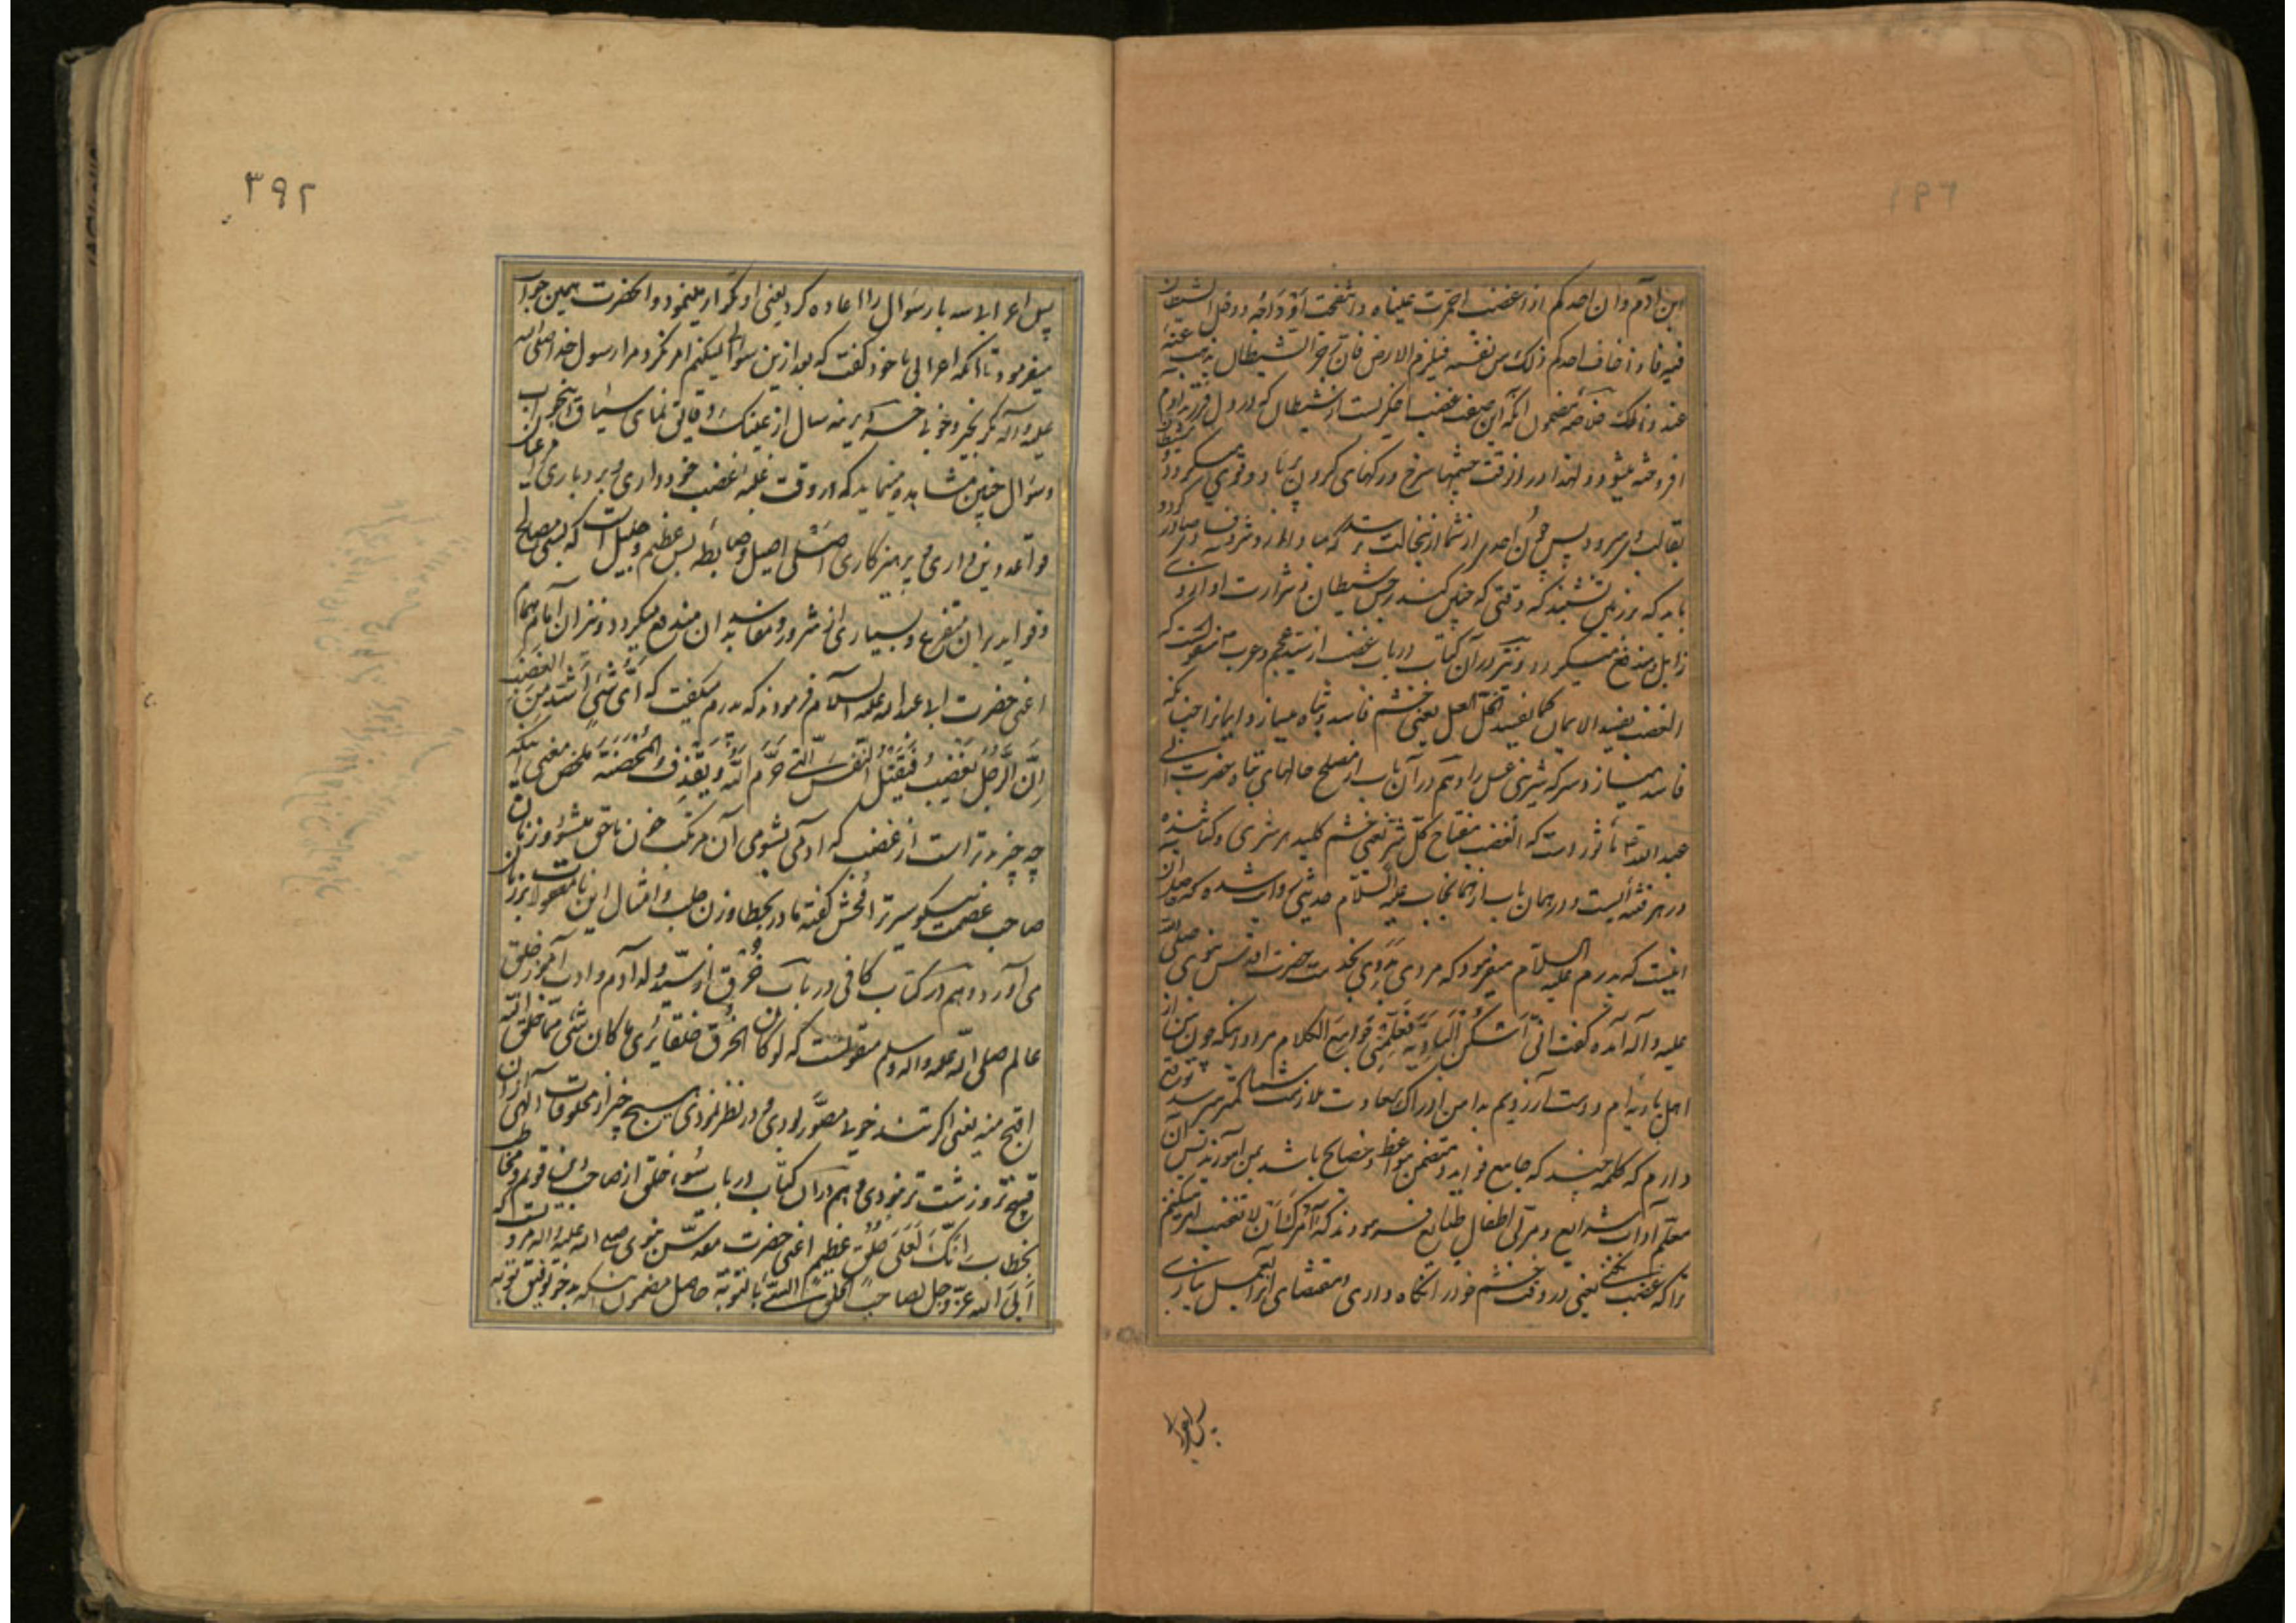 ابن آدم وان احدکم اذا غضب احمرت عیناه و انتفخت اوداجه و دخل الشیطان
فیه فاذا خاف احدکم ذلک من نفسه فیلزم الارض فان رجز الشیطان یذهب عنه
عند ذلک خلاصه مضمون آنکه این صفت غضب اخگریست از شیطان که در دل فرزند آدم
افروخته میشود و لهذا در آن وقت چشمها سرخ و رکهای کردن پرباد و قوی میکردد و شیطان
بقالب وی میرود پس چون احدی از شما از آنحالت ترسد که مبادا از او شر و فسادی صادر کردد
باید که بر زمین نشیند که وقتی که چنین کند رجس شیطان و شرارت او از وی
زایل و مندفع میکردد و نیز در آن کتاب در باب غضب از سید عجم و عرب منقولست که
الغضب یفسد الایمان کما یفسد الخل العسل یعنی خشم فاسد و تباه میسازد ایمانرا چنانکه
فاسد میسازد سرکه شیرینی عسل را و هم در آن باب از مصلح حالهای تباه حضرت ابی
عبد الله ماثور است که الغضب مفتاح کل شر یعنی خشم کلید هر شری و کشاینده
در هر فتنه ایست و در همان باب از همانجناب علیه السلام حدیثی روایت شده که حاصل آن
اینست که پدرم علیه السلام میفرمود که مردی بدوی بخدمت حضرت اقدس نبوی صلی الله
علیه و آله آمده گفت انی اسکن البادیة فعلمنی جوامع الکلام مراد آنکه چون من از
اهل بادیه ام و دست آرزویم بدامن ادراک سعادت ملازمت شما کمتر میرسد توقع
دارم که کلمه چند که جامع فواید و متضمن مواعظ و نصایح باشد بمن آموزید پس آن
معلم آداب شرایع و مربی اطفال طبایع فرمودند که آمرک ان لا تغضب امر میکنم
ترا که غضب نکنی یعنی در وقت خشم خود را نگاه داری و بمقتضای آن عمل نیاری
پس اعرابی
۳۹۲
پس اعرابی سه بار سؤال را اعاده کرد یعنی او تکرار مینمود و آنحضرت همین جواب
میفرمود تا آنکه اعرابی با خود گفت که بعد ازین سؤال نمیکنم امر نکرد مرا رسول خدا صلی الله
علیه و آله مکر بخیر و خوبی
و سؤال چنین مشاهده مینماید که در وقت غلبه غضب خودداری و بردباری
قواعد دین داری و پرهیزکاری اصلی اصیل و ضابطه بس عظیم و جلیل است که بسی مصالح
و فواید بر آن متفرع و بسیاری از شرور و مفاسد بدان مندفع میکردد و نیز از آن امام همام
اعنی حضرت ابی عبد الله علیه السلام فرمودند که پدرم میکفت که ای شئ اشد من الغضب
ان الرجل یغضب فیقتل النفس التی حرم الله و یقذف المحصنة ملخص معنی آنکه
چه چیز بدتر است از غضب که آدمی بشومی آن مرتکب خون ناحق میشود و زنان
صاحب عصمت نیکو سیرت را فحش گفته
می آورد و هم در کتاب کافی در باب خرق از سید ولد آدم و ادب آموز خلق
عالم صلی الله علیه و اله و سلم منقولست که لو کان الخرق خلقا یری ما کان شئ مما خلق الله
اقبح منه یعنی اکر تندخویی مصور بودی و در نظر نمودی هیچ چیز از مخلوقات الهی از آن
قبیح تر و زشت تر نبودی و هم در آن کتاب در باب سوء خلق از صاحب دین قویم و مخاطب
بخطاب انک لعلی خلق عظیم اعنی حضرت مقدس نبوی صلی الله علیه و اله مرویست که
ابی الله عز و جل لصاحب الخلق السیئ بالتوبة حاصل مضمون آنکه بدخو توفیق توبه